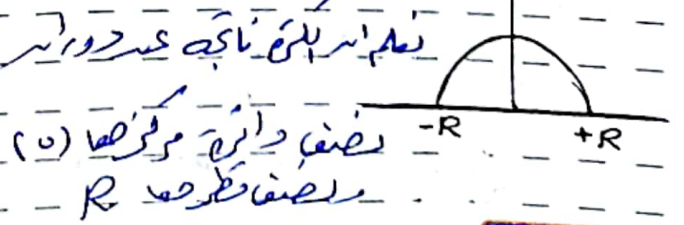 نعلم ان الكرة ناتجة عن دوران
نصف دائرة مركزها (٥)
ونصف قطرها R
-R
+R